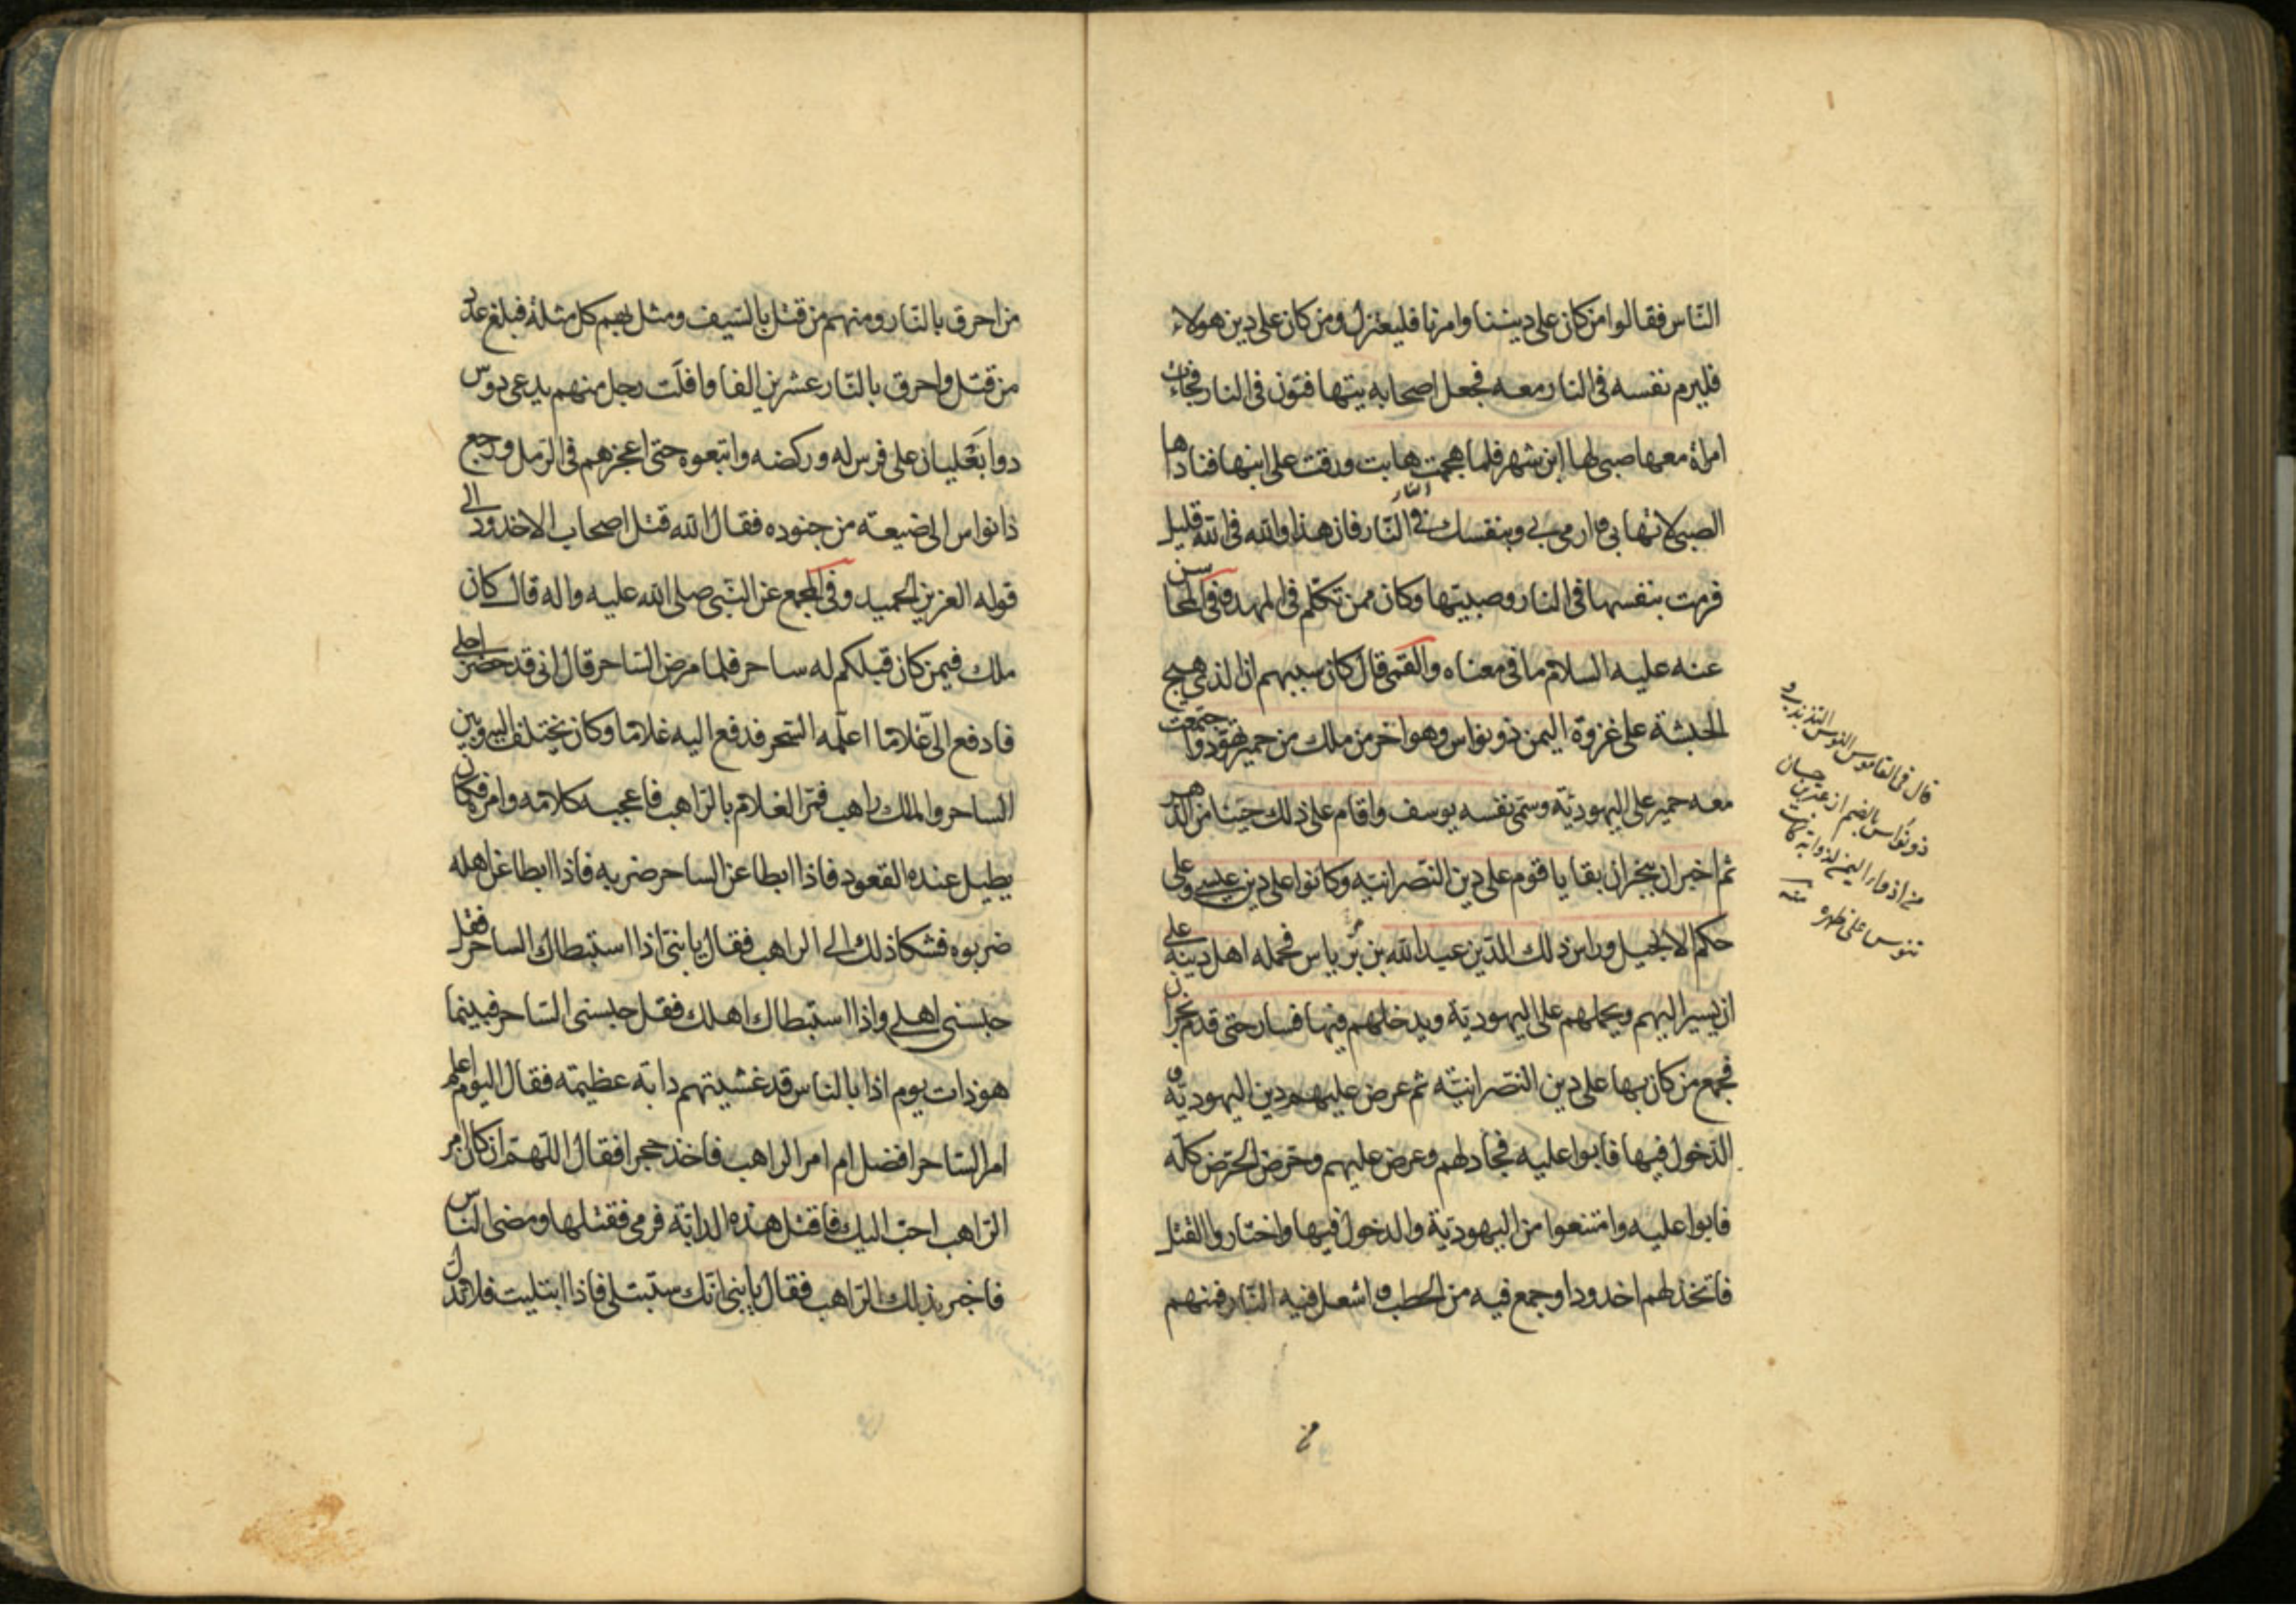 الناس فقالوا من كان على ديننا وامرنا فليعتزل ومن كان على دين هولاء
فليرم نفسه فى النار معه فجعل اصحابه يتهافتون فى النار فجاءت
امراة معها صبى لها ابن شهر فلما هجمت هابت ورقت على ابنها فناداها
الصبى لا تهابى وارمى بى وبنفسك فى النار فان هذا والله فى الله قليل
فرمت بنفسها فى النار وصبيتها وكان ممن تكلم فى المهد وفى المحاسن
عنه عليه السلام ما فى معناه والقمى قال كان سببهم ان الذى هيج
الحبشة على غزوة اليمن ذو نواس وهو اخر من ملك من حمير تهود واجتمعت
معه حمير على اليهودية وسمى نفسه يوسف واقام على ذلك حينا من الدهر
ثم اخبر ان بنجران بقايا قوم على دين النصرانية وكانوا على دين عيسى وعلى
حكم الانجيل وراس ذلك الدين عبد الله بن برياس فحمله اهل دينه على
ان يسير اليهم ويحملهم على اليهودية ويدخلهم فيها فسار حتى قدم نجران
فجمع من كان بها على دين النصرانية ثم عرض عليهم دين اليهودية و
الدخول فيها فابوا عليه فجادلهم وعرض عليهم وحرض الحرض كله
فابوا عليه وامتنعوا من اليهودية والدخول فيها واختاروا القتل
فاتخذ لهم اخدودا وجمع فيه من الحطب واشعل فيه النار فمنهم
قال فى القاموس النوس التذبذب و
ذو نواس بالضم
من اذواء اليمن لذوابة كانت
تنوس على ظهره منه
من
من احرق بالنار ومنهم من قتل بالسيف ومثل بهم كل مثلة فبلغ عدد
من قتل واحرق بالنار عشرين الفا وافلت رجل منهم يدعى دوس
ذوا بغلبان على فرس له وركضه واتبعوه حتى اعجزهم فى الرمل ورجع
ذا نواس الى ضيعته من جنوده فقال الله قتل اصحاب الاخدود الى
قوله العزيز الحميد وفى المجمع عن النبى صلى الله عليه واله قال كان
ملك فيمن كان قبلكم له ساحر فلما مرض الساحر قال انى قد حضر اجلى
فادفع الى غلاما اعلمه السحر فدفع اليه غلاما وكان يختلف اليه وبين
الساحر والملك راهب فمر الغلام بالراهب فاعجبه كلامه وامره فكان
يطيل عنده القعود فاذا ابطا عن الساحر ضربه فاذا ابطا عن اهله
ضربوه فشكا ذلك الى الراهب فقال يا بنى اذا استبطاك الساحر فقل
حبسنى اهلى واذا استبطاك اهلك فقل حبسنى الساحر فبينما
هو ذات يوم اذا بالناس قد غشيتهم دابة عظيمة فقال اليوم اعلم
امر الساحر افضل ام امر الراهب فاخذ حجرا فقال اللهم ان كان امر
الراهب احب اليك فاقتل هذه الدابة فرمى فقتلها ومضى الناس
فاخبر بذلك الراهب فقال يا بنى انك ستبتلى فاذا ابتليت فلا تدل